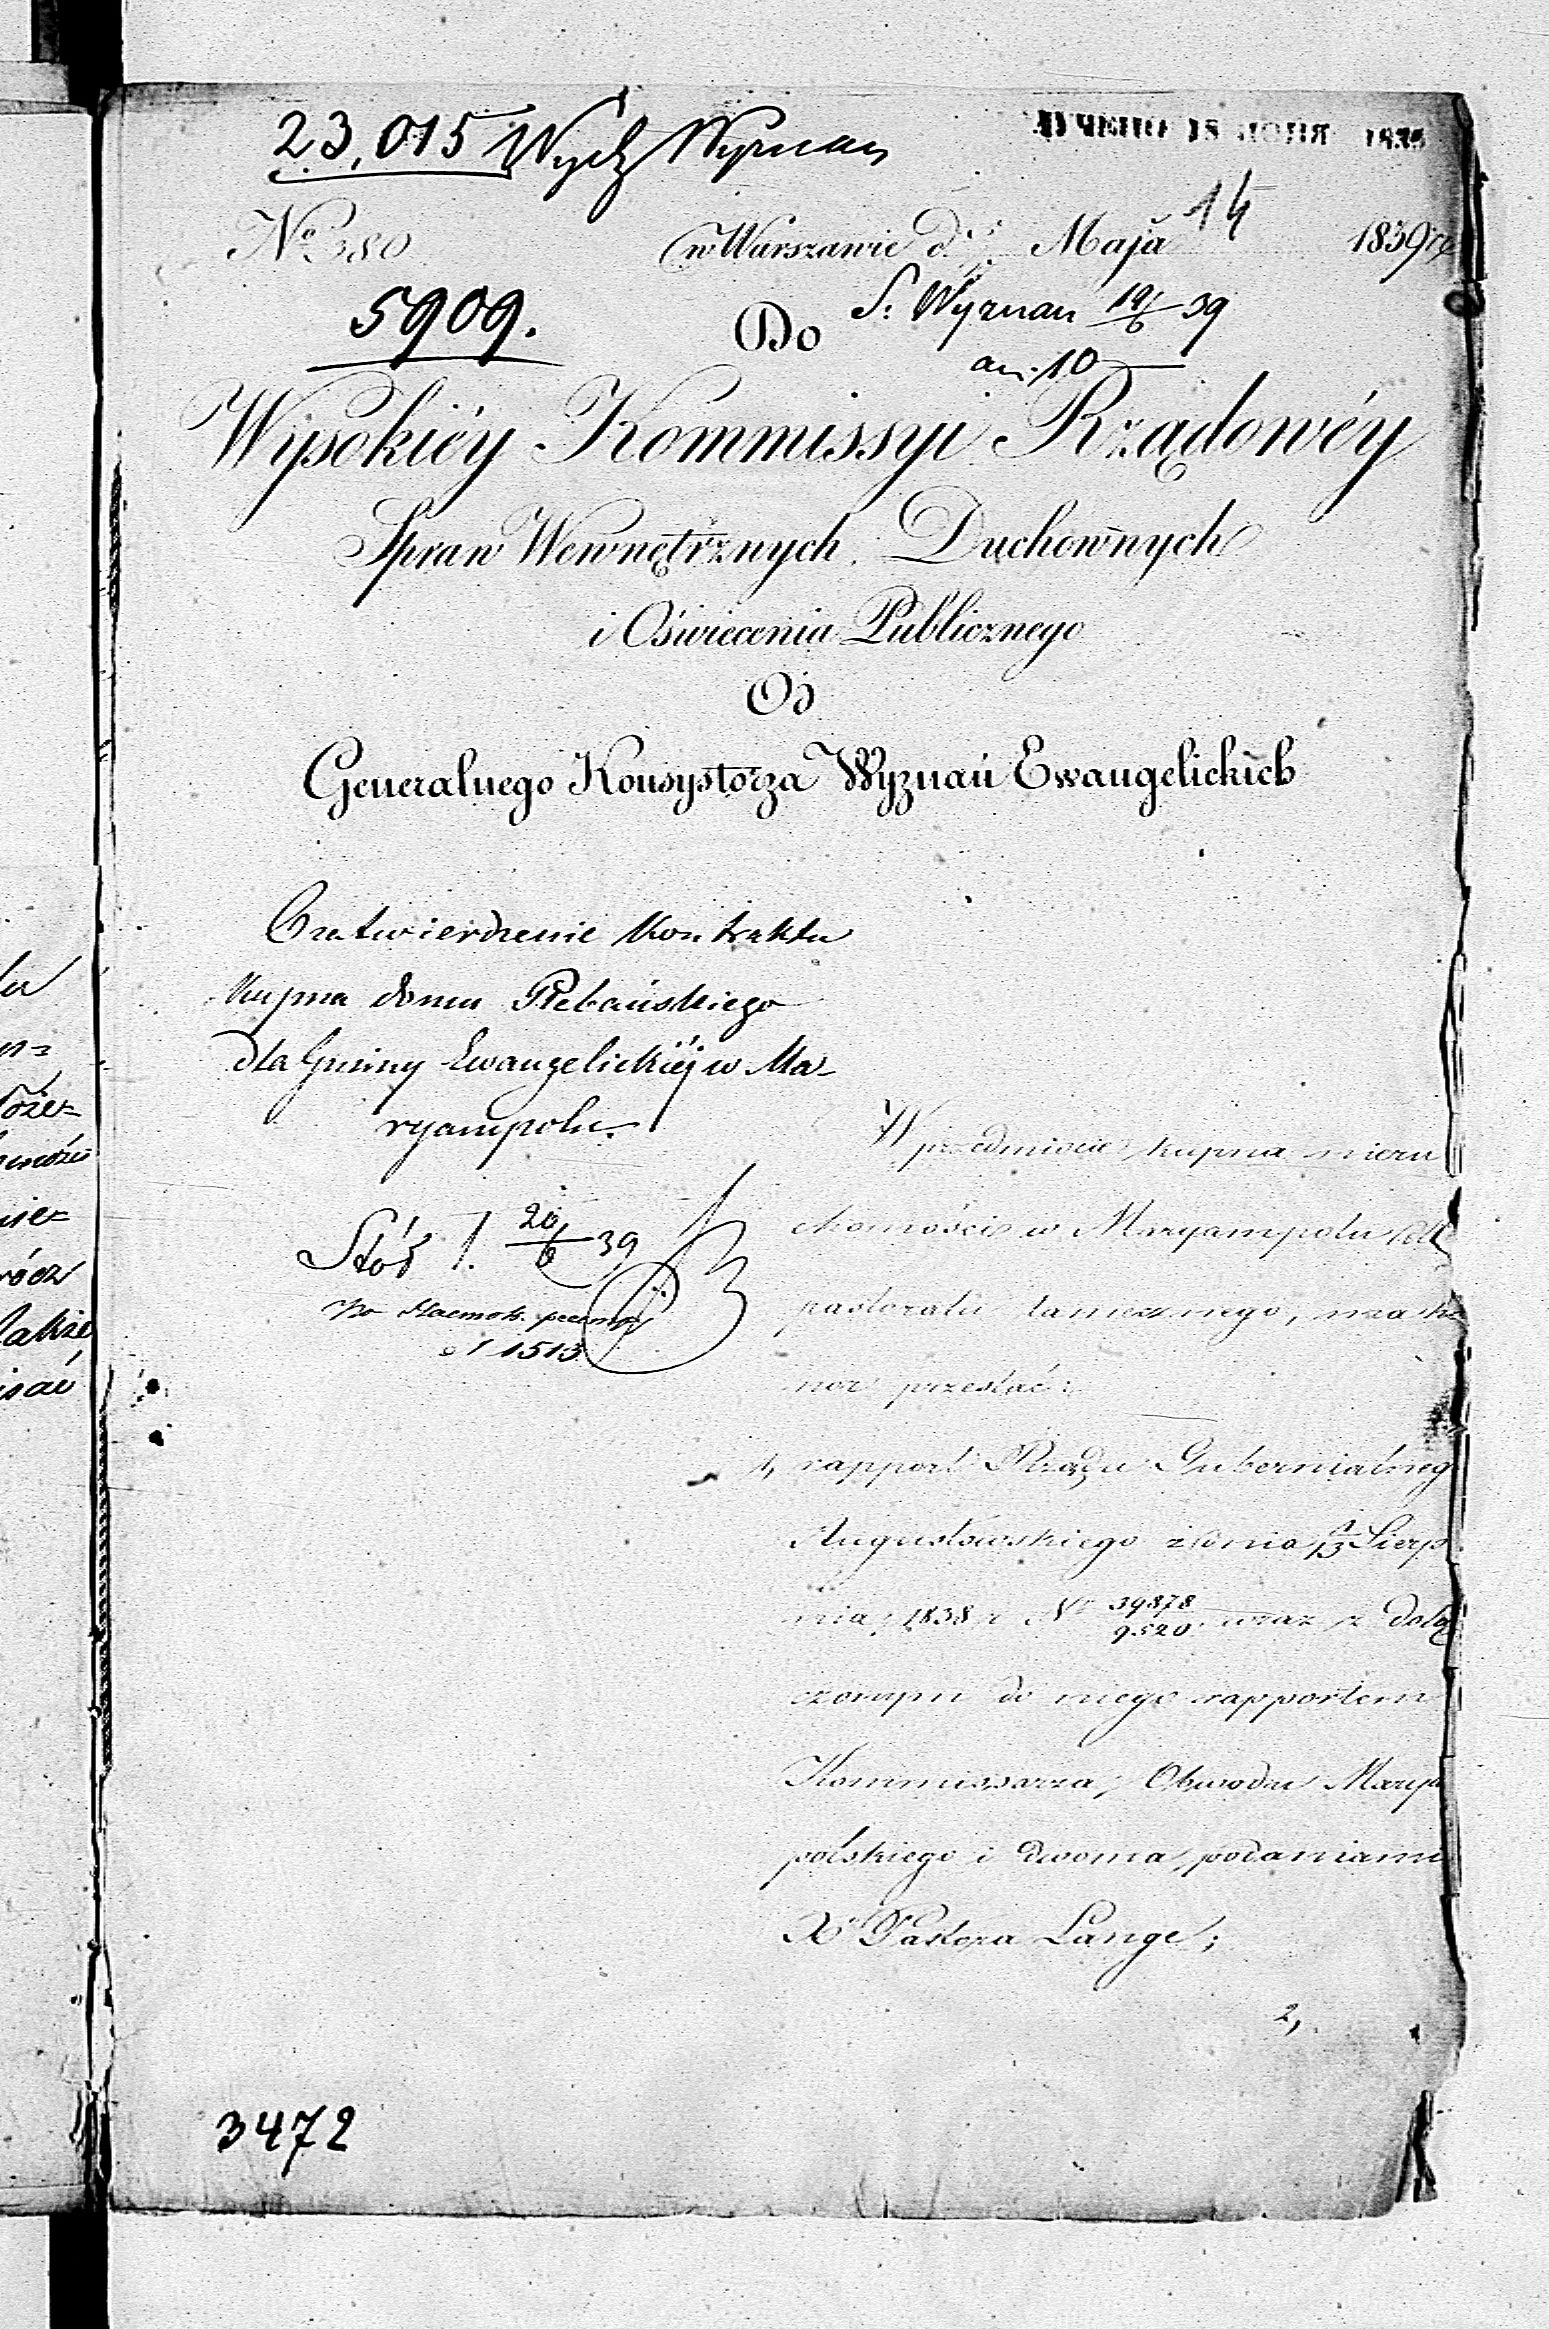 23,015 Wydz Wyznań
18 1839
№ 380 w Warszawie d. Maja 14 1839 r.
5909.
Do
S: Wyznań 19/6 39
an. 10
Wysokiéy Kommissyi Rządowéy
Spraw Wewnętrznych Duchownych
i Oświecenia Publicznego
Od
Generalnego Konsystorza Wyznań Ewangelickich
O zatwierdzenie Kontraktu
Kupna domu Plebańskiego
dla Gminy Ewangelickiéj w Ma-
ryampolu.
Stół 1. 20/6 39
1513
W przedmiocie kupna nieru
chomości w Maryampolu dla
pastoratu tamecznego, ma ho
nor przesłać:
1, rapport Rządu Gubernialneg
Augustowskiego z dnia 1/13 Sierp
nia 1838 r. № 39878/9520 wraz z dołą
czonym do niego rapportem
Kommissarza Obwodu Maryam
polskiego i dwoma podaniami
X Pastora Lange;
2,
3472